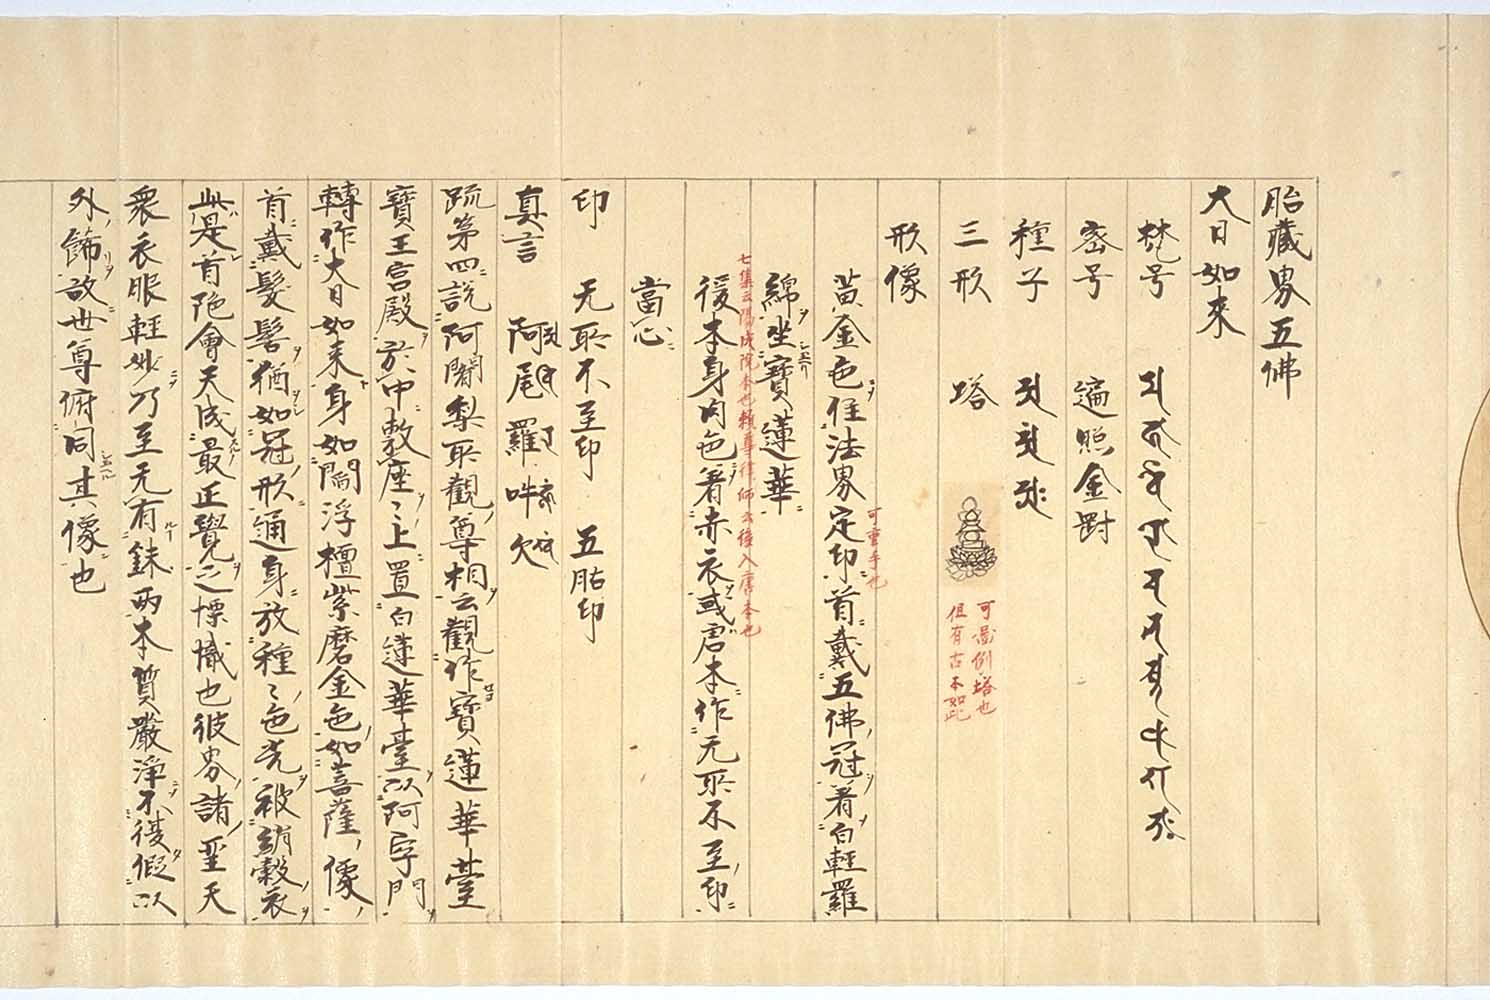 胎藏界五佛
大日如來
梵号
密号 遍照金剛
種子
三形 塔
可圖例塔也
但有古本如此
形像
黃金色住法界定印首戴五佛冠著白輕羅
可重手也
綿坐寶蓮華
七集云陽成院本也賴尊律師云後入唐本也
複本身肉色著赤衣或唐本作无所不至印
當心
印 无所不至印 五股印
真言 阿尾羅吽欠
疏第四說阿闍梨所觀尊相云觀作寶蓮華臺
寶王宮殿於中敷座〻上置白蓮華臺以阿字門
轉作大日如来身如閻浮檀紫磨金色如菩薩像
首戴髮髻猶如冠形通身放種〻色光被絹縠衣
此是首陀會天成最正覺之慓幟也彼界諸聖天
衆衣服輕妙乃至无有銖兩本質嚴淨不復假以
外飾故世尊俯同其像也